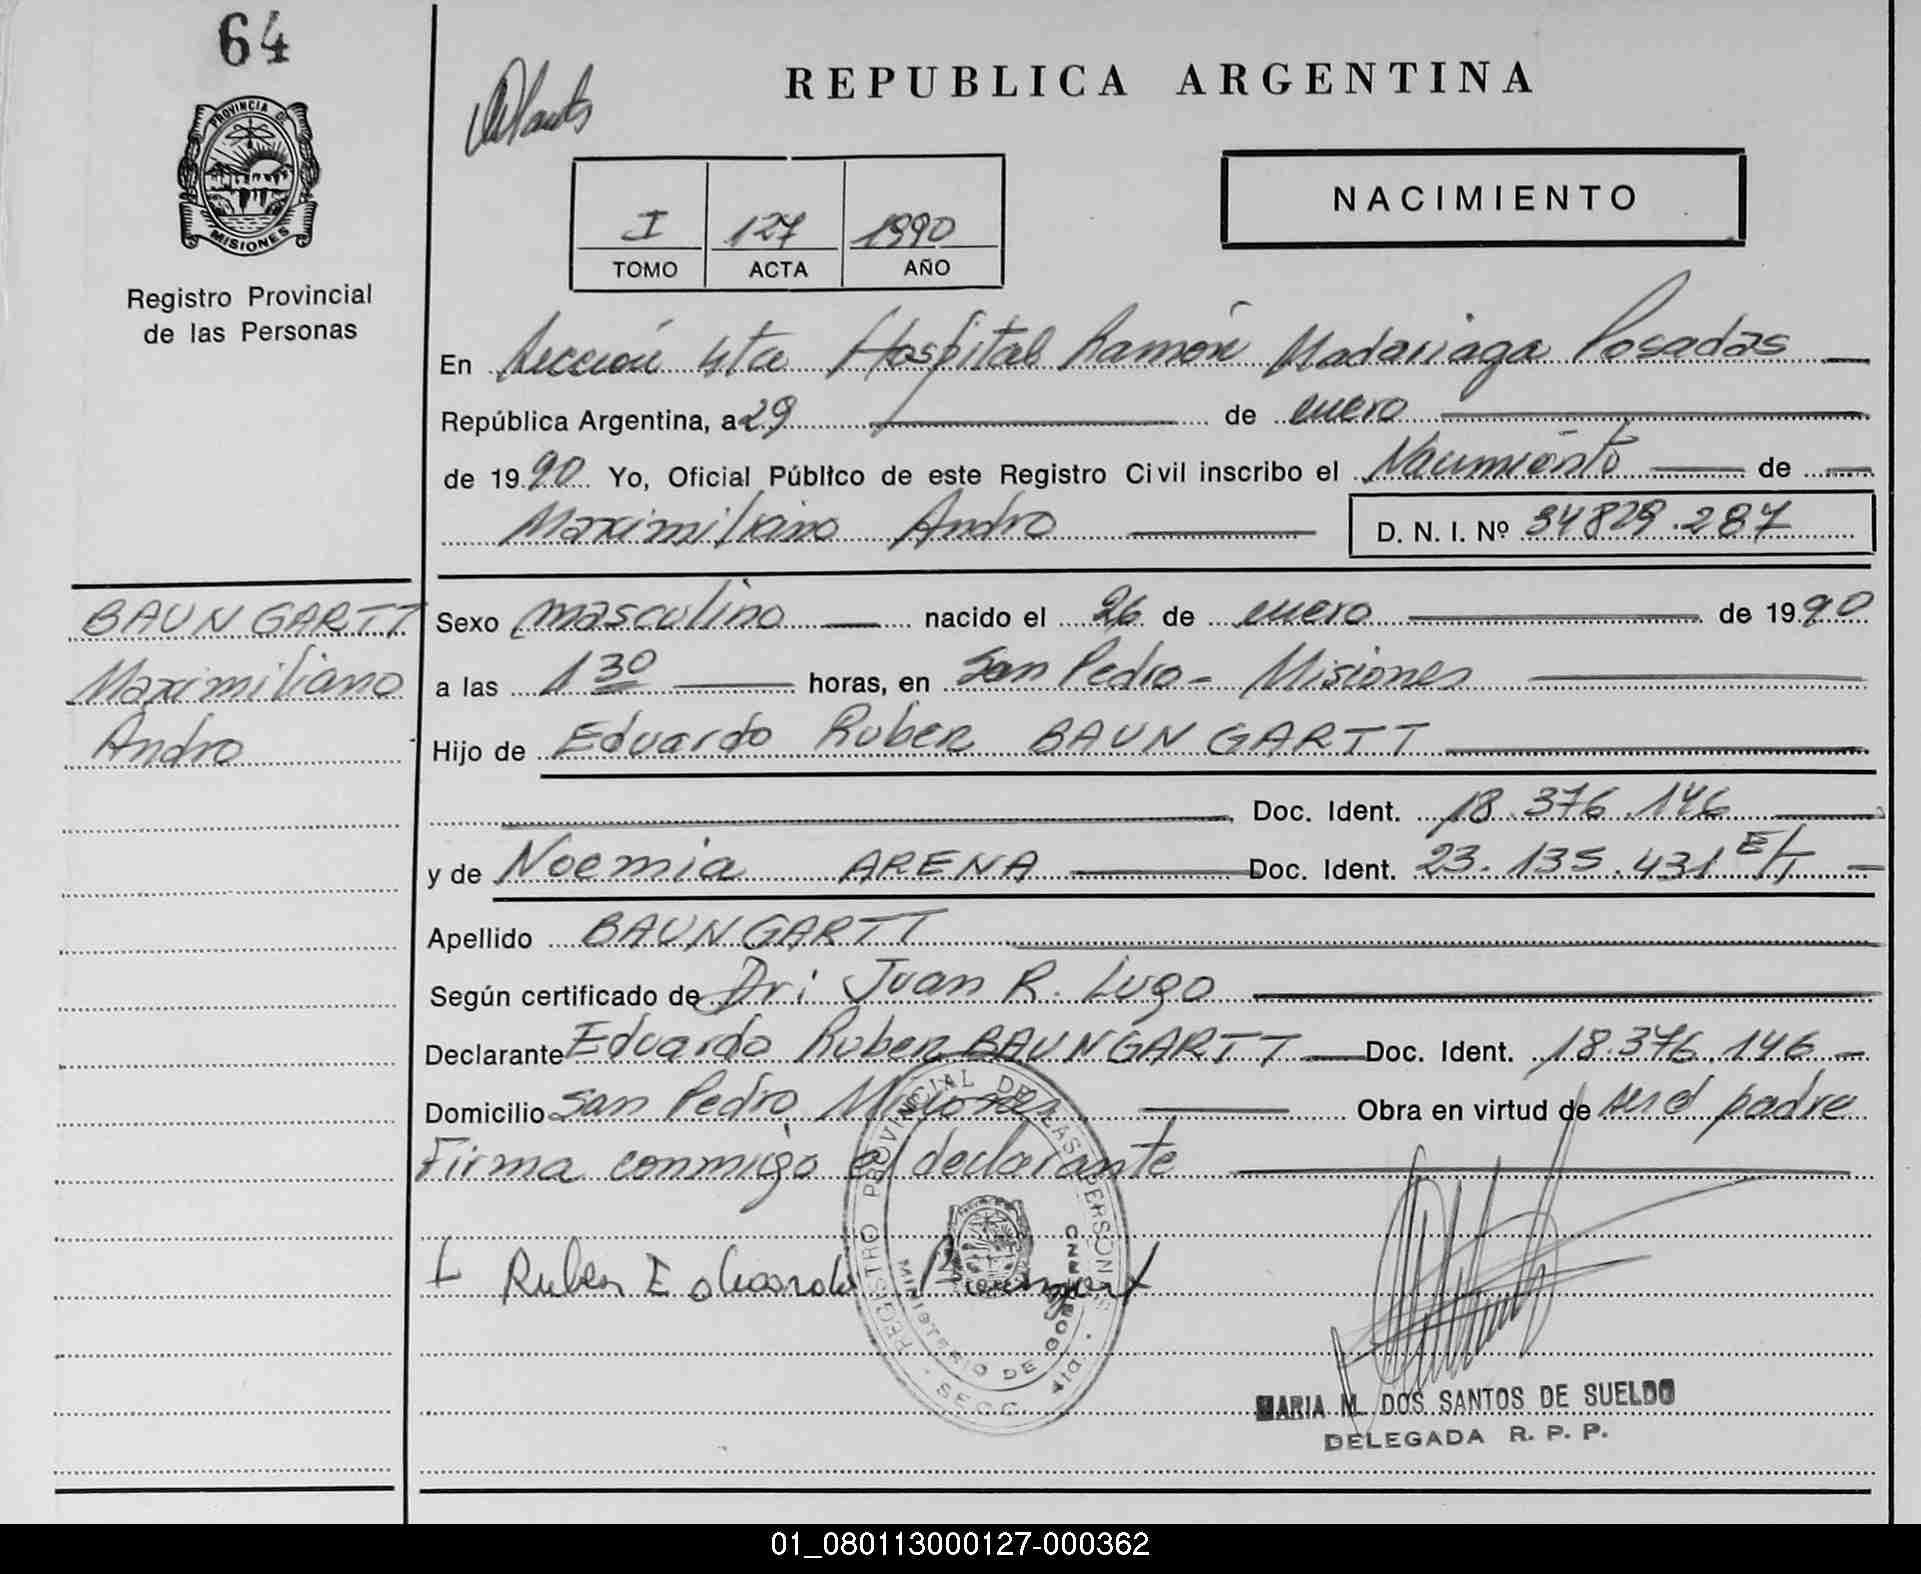 64
PROVINCIA DE
MISIONES
Registro Provincial
de las Personas
REPUBLICA ARGENTINA
NACIMIENTO
I 127 1990
TOMO ACTA AÑO
En Sección 4ta Hospital Ramón Madariaga Posadas
República Argentina, a 29 de enero
de 1990 Yo, Oficial Público de este Registro Civil inscribo el Nacimiento de
Maximiliano Andro D. N. I. Nº 34829.287
BAUNGARTT
Maximiliano
Andro
Sexo masculino nacido el 26 de enero de 1990
a las 1 30 horas, en San Pedro - Misiones
Hijo de Eduardo Ruben BAUNGARTT
Doc. Ident. 18.376.146
y de Noemia ARENA Doc. Ident. 23.135.431 E/T
Apellido BAUNGARTT
Según certificado de Dr: Juan R. Lugo
Declarante Eduardo Ruben BAUNGARTT Doc. Ident. 18.376.146
Domicilio San Pedro Misiones Obra en virtud de ser el padre
Firma conmigo el declarante
REGISTRO PROVINCIAL DE LAS PERSONAS
MINISTERIO DE GOBIERNO
Ruben Eduardo
MARIA M. DOS SANTOS DE SUELDO
DELEGADA R. P. P.
01_080113000127-000362